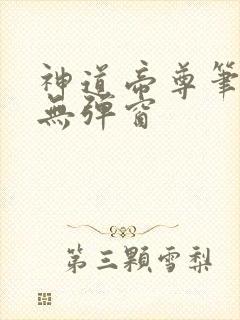 神道帝尊筆
無彈窗
第三顆雪梨